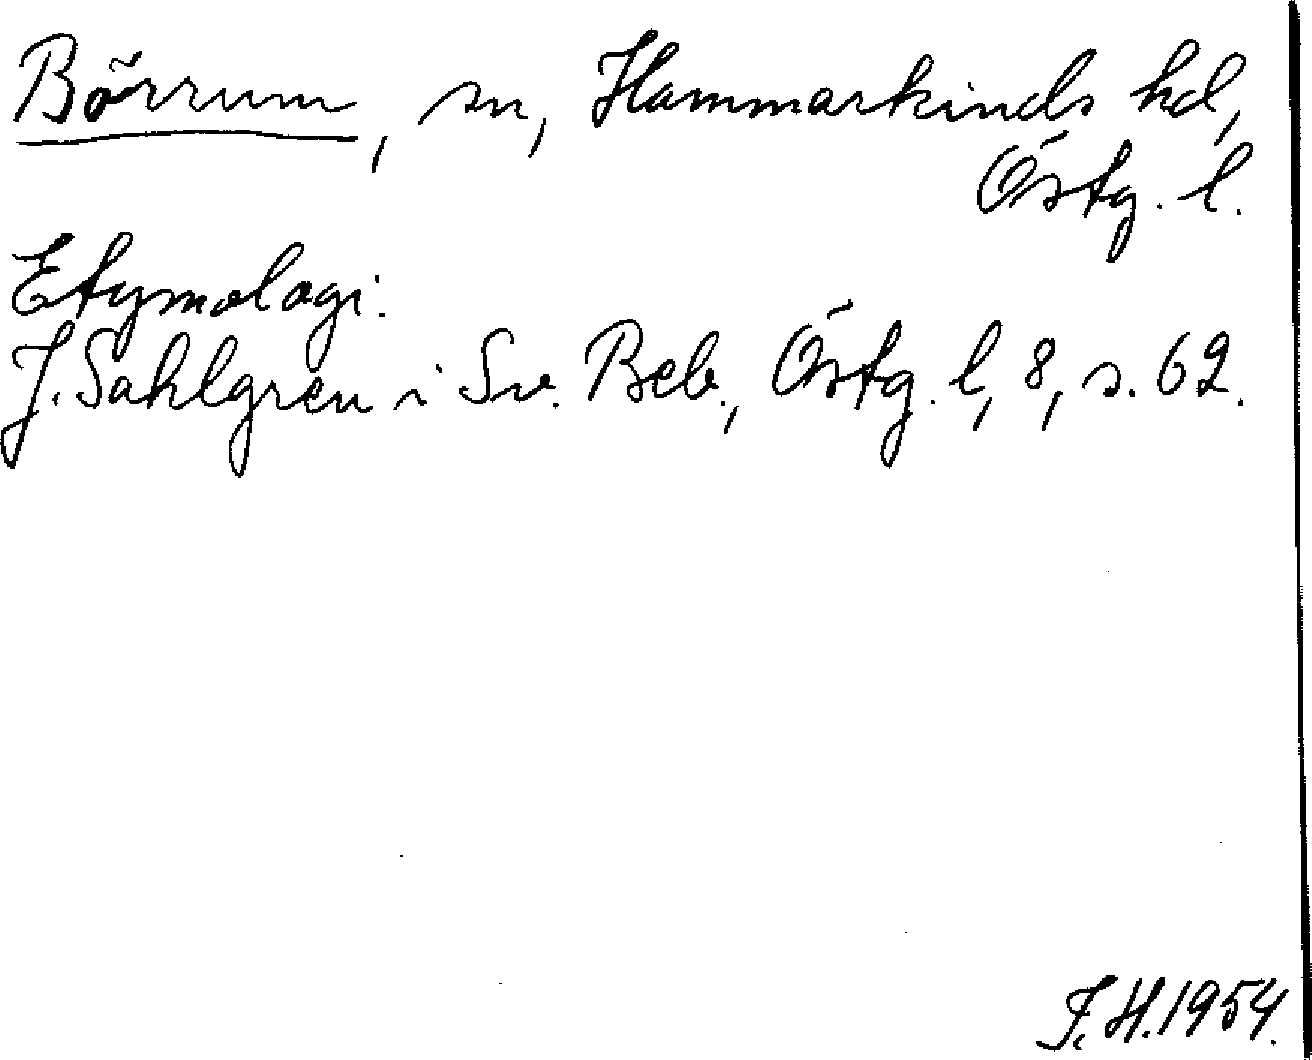 Börrum, sn, Hammarkinds hd,
Östg. l.
Etymologi.
J. Sahlgren i Sv. Beb., Östg. l, 8, s. 62.
F.H. 1954.